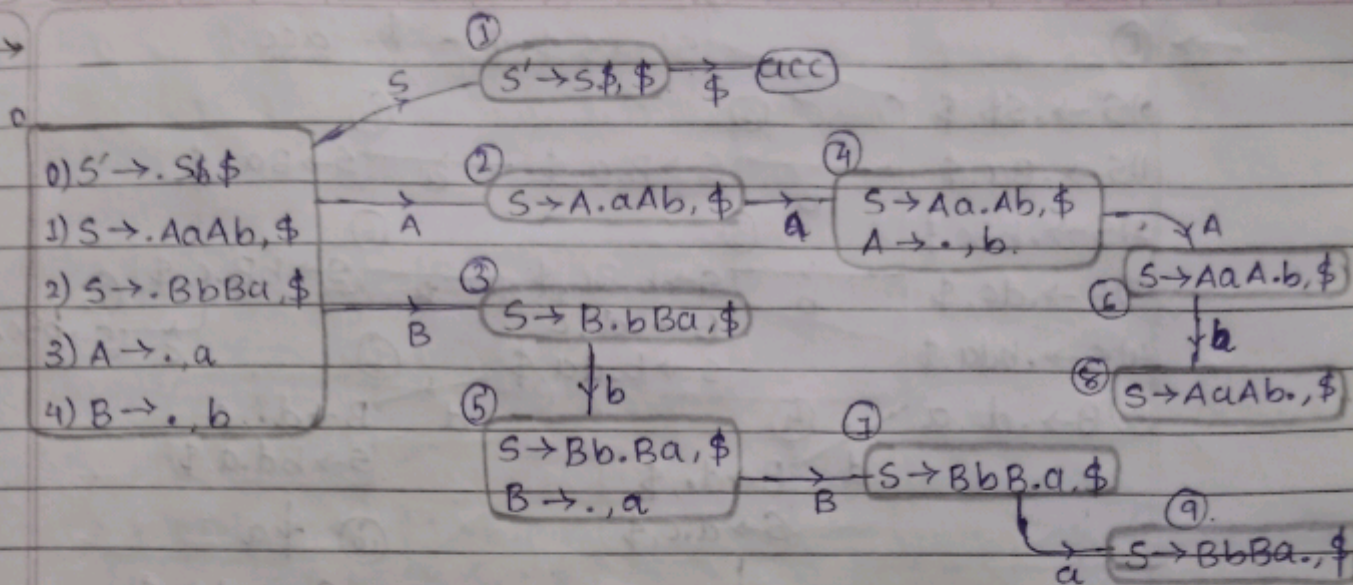 ①
S' → S$, $
$
acc
S
0
0) S' → . S$, $
1) S → .AaAb, $
2) S → .BbBa, $
3) A → ., a
4) B → ., b
A
②
S → A.aAb, $
a
④
S → Aa.Ab, $
A → ., b.
A
⑥
S → AaA.b, $
b
⑧
S → AaAb., $
B
③
S → B.bBa, $
b
⑤
S → Bb.Ba, $
B → ., a
B
⑦
S → BbB.a, $
a
⑨.
S → BbBa., $